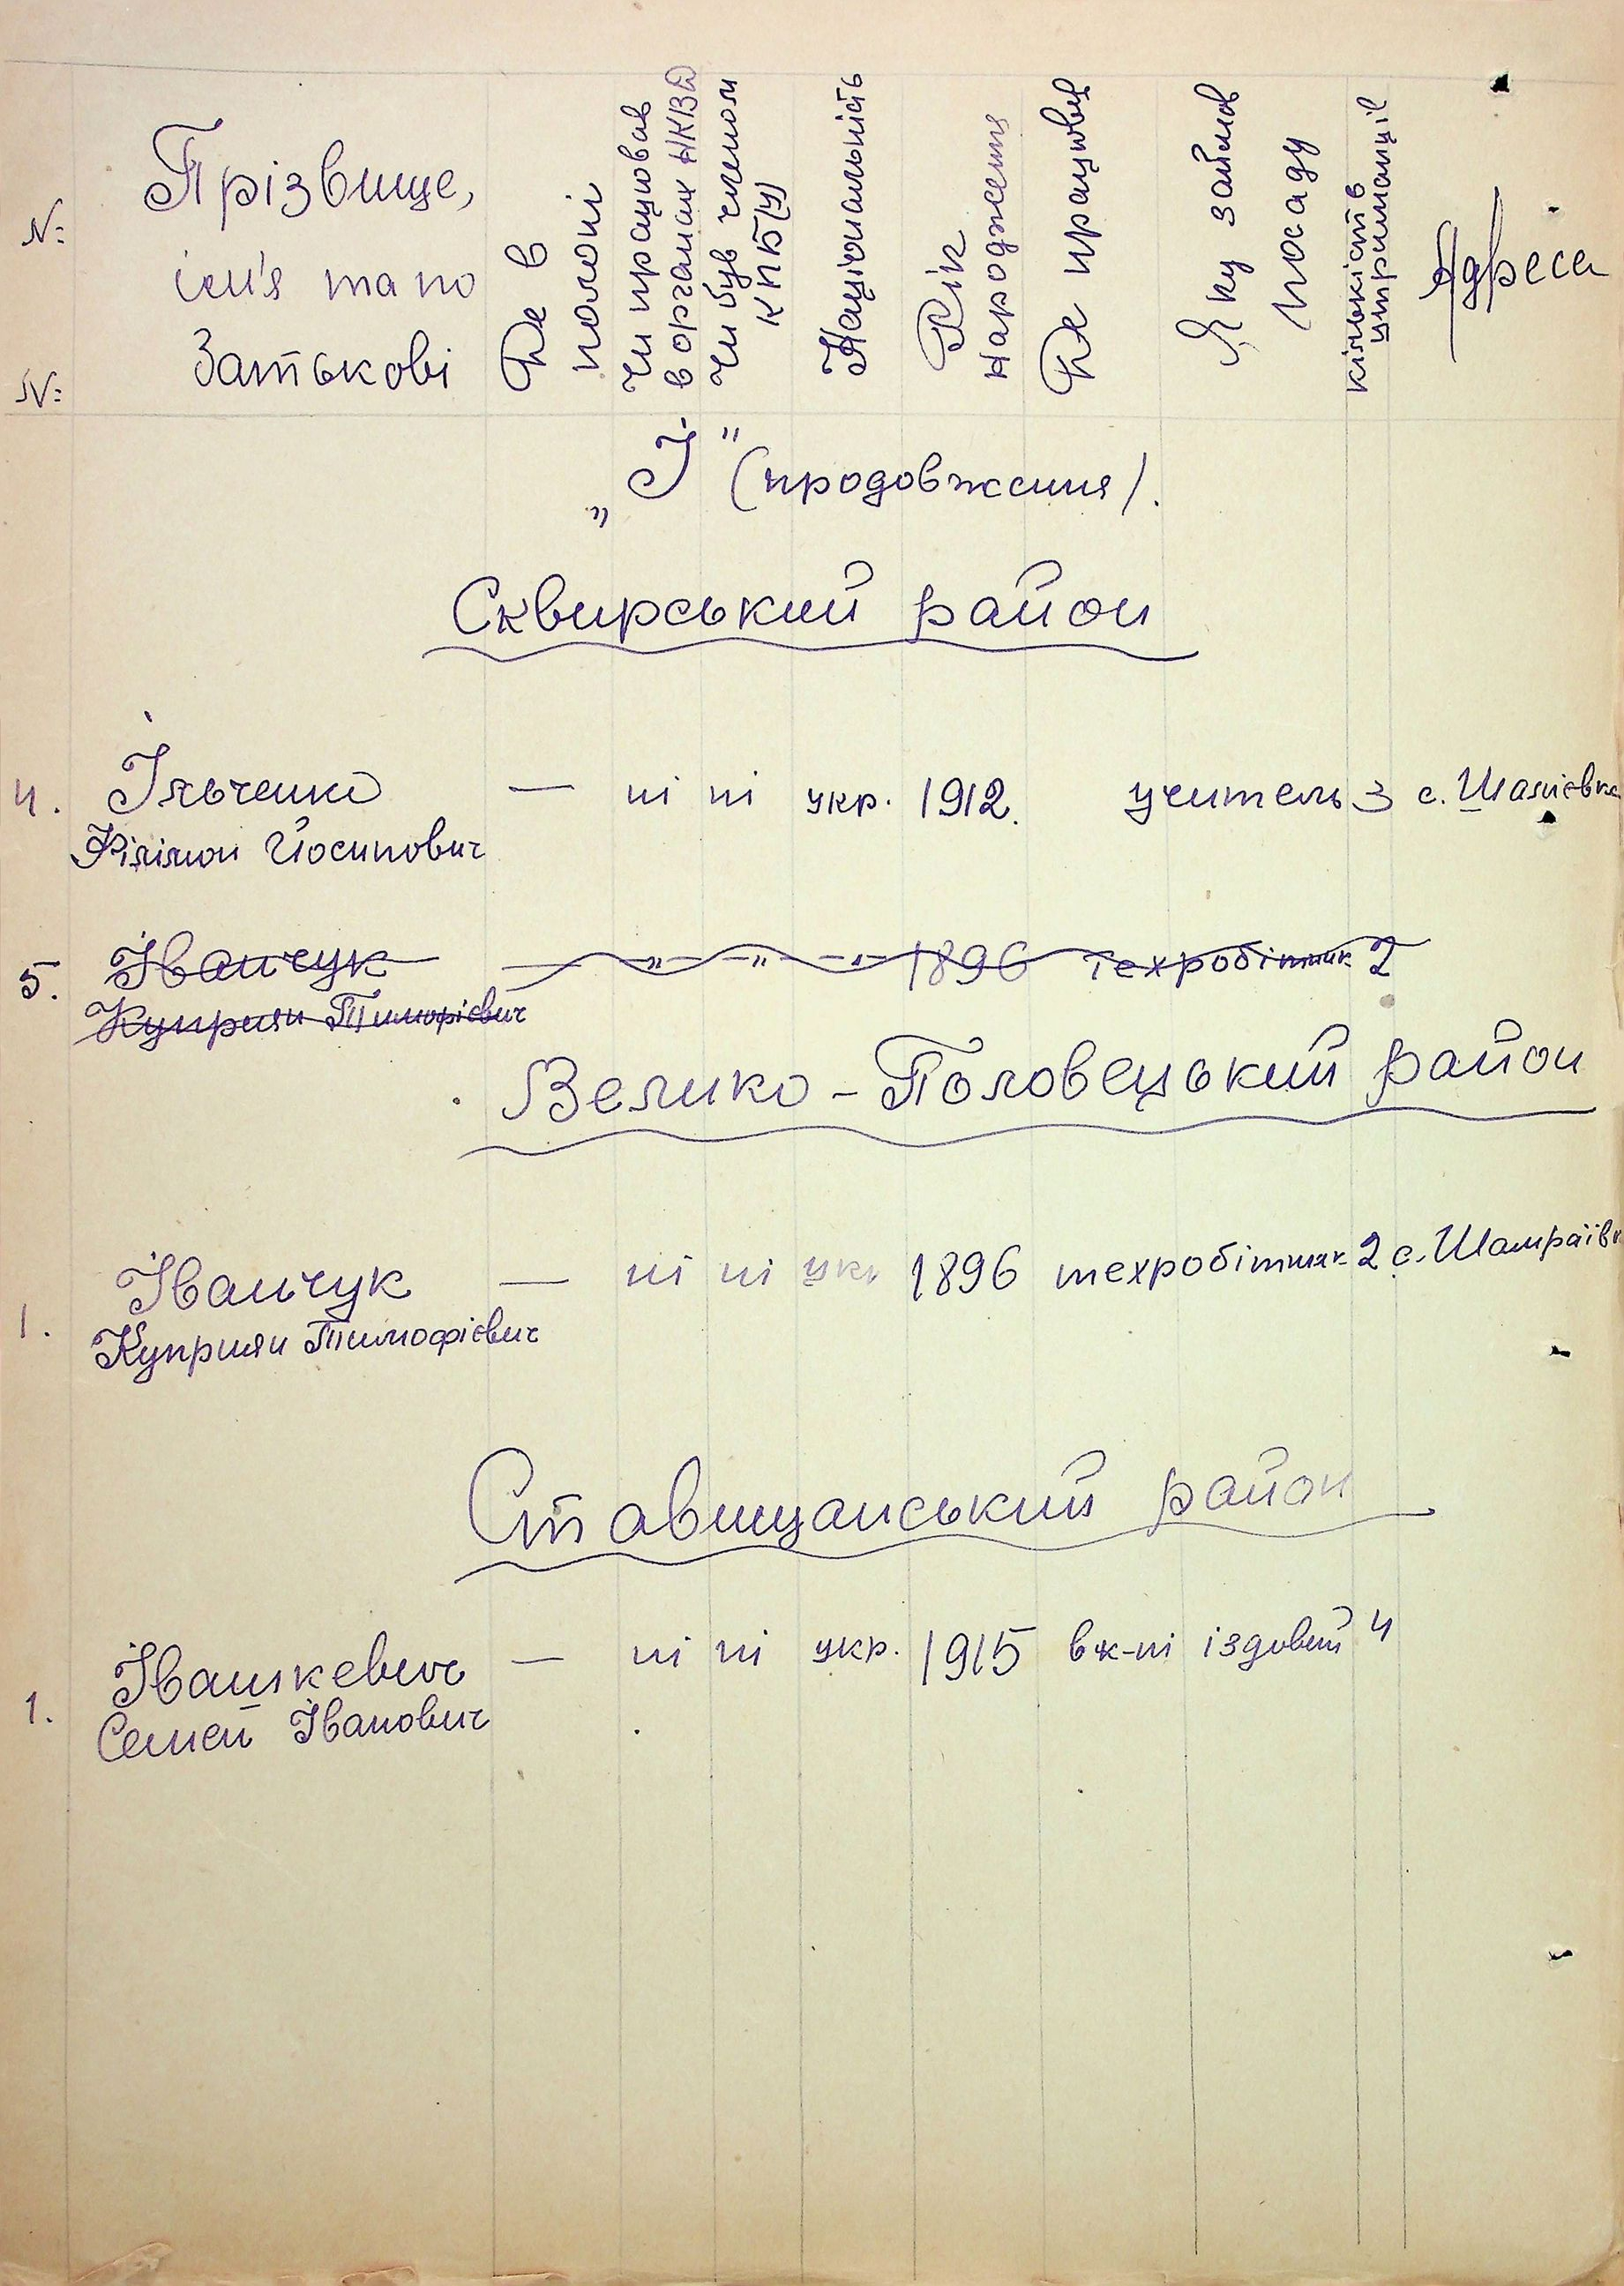 № Прізвище,
ім'я та по
№ батькові
Де в
полоні
Чи працював
в органах НКВД
Чи був членом
КПБ(У)
Національність
Рік
народження
Де працював
Яку займав
посаду
кількість
утриманців
Адреса
„І" (продовження).
Сквирський район
4. Ільченко — ні ні укр. 1912. учитель 3 с. Шаліївка
Філімон Йосипович
5. Іванчук — „ — „ — „ — 1896 техробітник 2
Куприян Тимофієвич
Велико-Половецький район
1. Іванчук — ні ні укр 1896 техробітник 2 с. Шамраївк
Куприян Тимофієвич
Ставищанський район
1. Івашкевич — ні ні укр. 1915 вк-ні іздовий 4
Семен Іванович